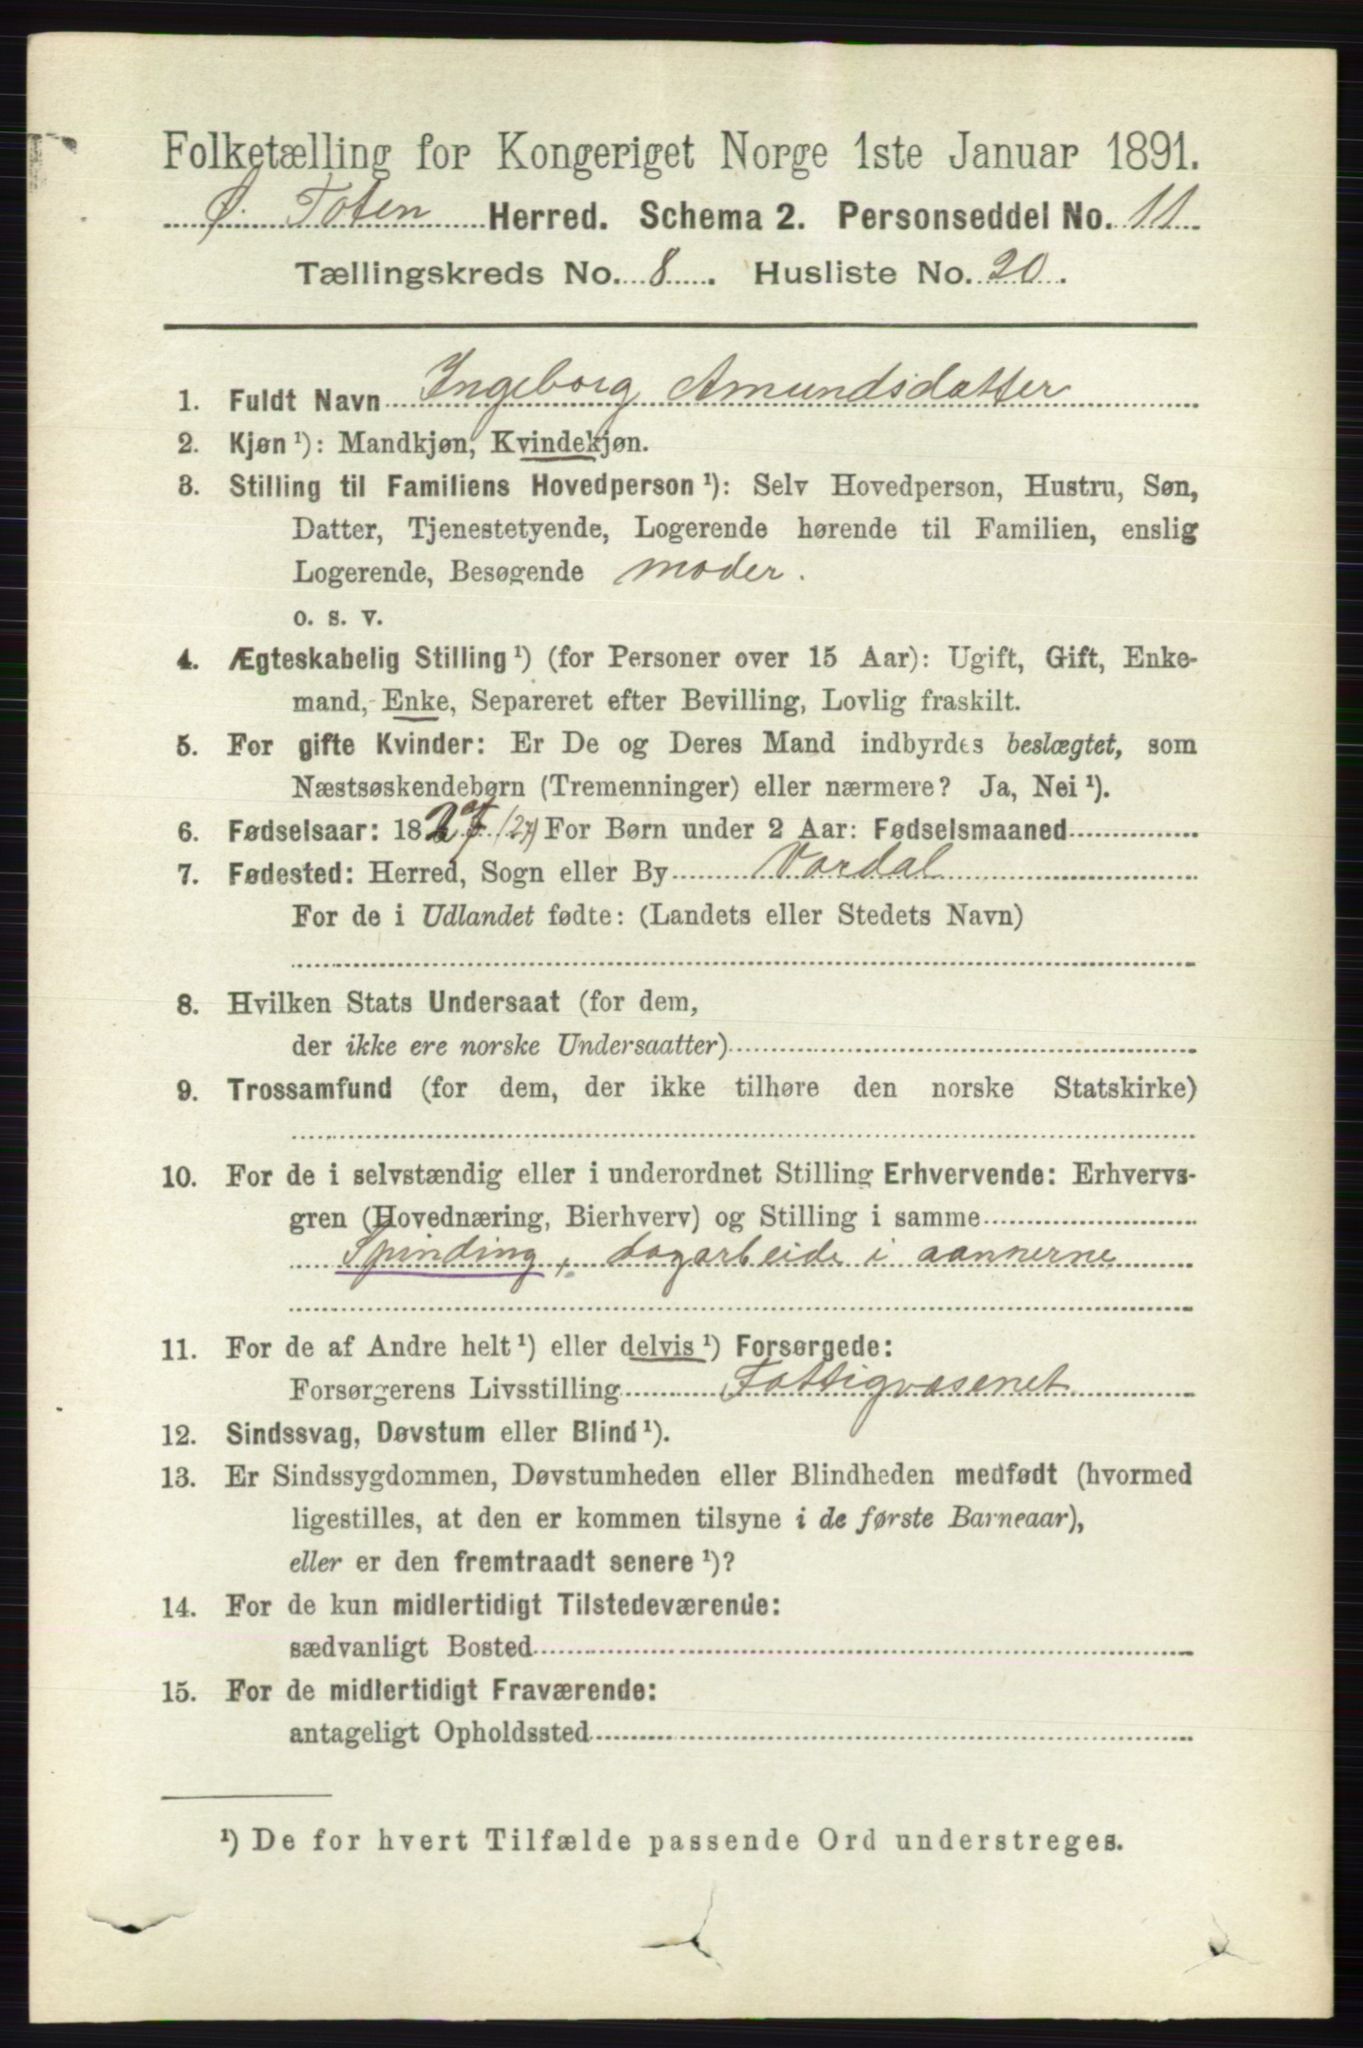 Folketælling for Kongeriget Norge 1ste Januar 1891.
Ø. Toten Herred. Schema 2. Personseddel No. 11
Tællingskreds No. 8. Husliste No. 20.
1. Fuldt Navn Ingeborg Amundsdatter
2. Kjøn ¹): Mandkjøn, Kvindekjøn.
3. Stilling til Familiens Hovedperson ¹): Selv Hovedperson, Hustru, Søn,
Datter, Tjenestetyende, Logerende hørende til Familien, enslig
Logerende, Besøgende moder.
o. s. v.
4. Ægteskabelig Stilling ¹) (for Personer over 15 Aar): Ugift, Gift, Enke-
mand, Enke, Separeret efter Bevilling, Lovlig fraskilt.
5. For gifte Kvinder: Er De og Deres Mand indbyrdes beslægtet, som
Næstsøskendebørn (Tremenninger) eller nærmere? Ja, Nei ¹).
6. Fødselsaar: 1827 (27) For Børn under 2 Aar: Fødselsmaaned
7. Fødested: Herred, Sogn eller By Vardal
For de i Udlandet fødte: (Landets eller Stedets Navn)
8. Hvilken Stats Undersaat (for dem,
der ikke ere norske Undersaatter)
9. Trossamfund (for dem, der ikke tilhøre den norske Statskirke)
10. For de i selvstændig eller i underordnet Stilling Erhvervende: Erhvervs-
gren (Hovednæring, Bierhverv) og Stilling i samme
Spinding, dagarbeide i aannerne
11. For de af Andre helt ¹) eller delvis ¹) Forsørgede:
Forsørgerens Livsstilling Fattigvæsenet
12. Sindssvag, Døvstum eller Blind ¹).
13. Er Sindssygdommen, Døvstumheden eller Blindheden medfødt (hvormed
ligestilles, at den er kommen tilsyne i de første Barneaar),
eller er den fremtraadt senere ¹)?
14. For de kun midlertidigt Tilstedeværende:
sædvanligt Bosted
15. For de midlertidigt Fraværende:
antageligt Opholdssted
¹) De for hvert Tilfælde passende Ord understreges.